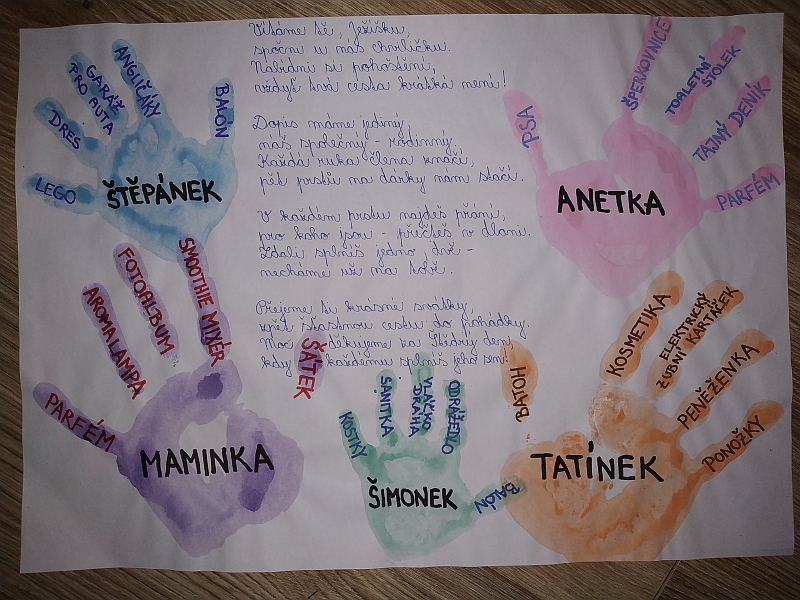 Vítáme tě, Ježíšku,
spočni u nás chviličku.
Nabídni si pohoštění,
vždyť tvá cesta krátká není!
Dopis máme jediný,
náš společný - rodinný.
Každá ruka člena značí,
pět prstů na dárky nám stačí.
V každém prstu najdeš přání,
pro koho jsou - přečteš v dlani.
Zdali splníš jedno, dvě -
necháme už na tobě.
Přejeme ti krásné svátky,
zpět šťastnou cestu do pohádky.
Moc děkujeme za Štědrý den,
kdy každému splníš jeho sen!
LEGO
DRES
GARÁŽ
PRO AUTA
ANGLIČÁKY
BALÓN
ŠTĚPÁNEK
PSA
ŠPERKOVNICE
TOALETNÍ
STOLEK
TAJNÝ DENÍK
PARFÉM
ANETKA
PARFÉM
AROMALAMPA
FOTOALBUM
SMOOTHIE MIXÉR
ŠÁTEK
MAMINKA
KOSTKY
SANITKA
VLÁČKO
DRÁHA
ODRÁŽEDLO
BALÓN
ŠIMONEK
BATOH
KOSMETIKA
ELEKTRICKÝ
ZUBNÍ KARTÁČEK
PENĚŽENKA
PONOŽKY
TATÍNEK